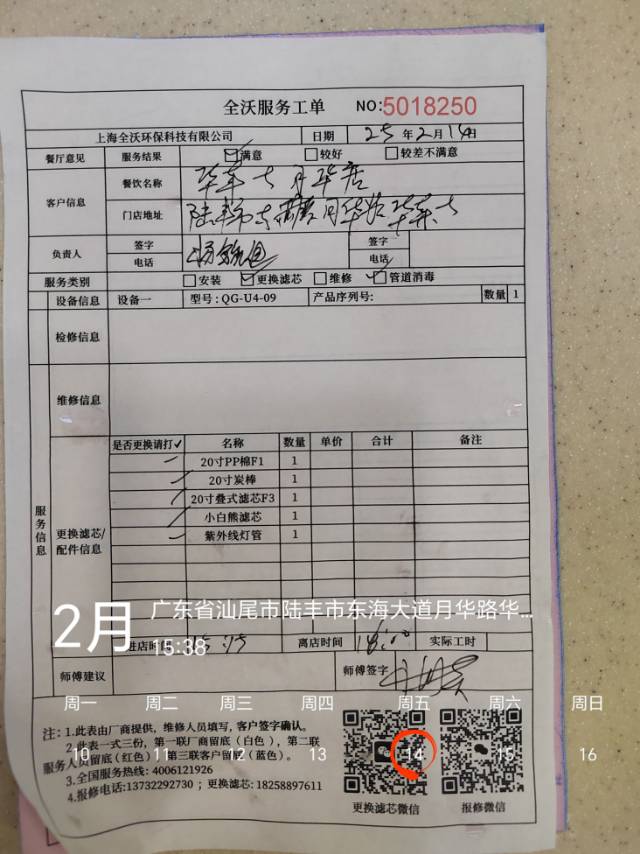 全沃服务工单 NO:5018250
上海全沃环保科技有限公司 日期 25 年 2 月 14 日
餐厅意见 服务结果 ☑满意 □较好 □较差不满意
客户信息 餐饮名称 华莱士月华店
门店地址 陆丰市 月华路华莱士
负责人 签字 签字
电话 电话
服务类别 □安装 ☑更换滤芯 □维修 ☑管道消毒
设备信息 设备一 型号:QG-U4-09 产品序列号: 数量 1
检修信息
维修信息
服务信息
更换滤芯/配件信息
是否更换请打✓ 名称 数量 单价 合计 备注
✓ 20寸PP棉F1 1
✓ 20寸炭棒 1
✓ 20寸叠式滤芯F3 1
✓ 小白熊滤芯 1
✓ 紫外线灯管 1
2月 广东省汕尾市陆丰市东海大道月华路华...
15:38
进店时间 15:15 离店时间 18:00 实际工时
师傅建议 师傅签字
周一 周二 周三 周四 周五 周六 周日
10 11 12 13 14 15 16
注: 1.此表由厂商提供，维修人员填写，客户签字确认。
2.此表一式三份，第一联厂商留底（白色），第二联
服务人员留底(红色）第三联客户留底（蓝色）。
3.全国服务热线: 4006121926
4.报修电话:13732292730；更换滤芯: 18258897611
更换滤芯微信 报修微信